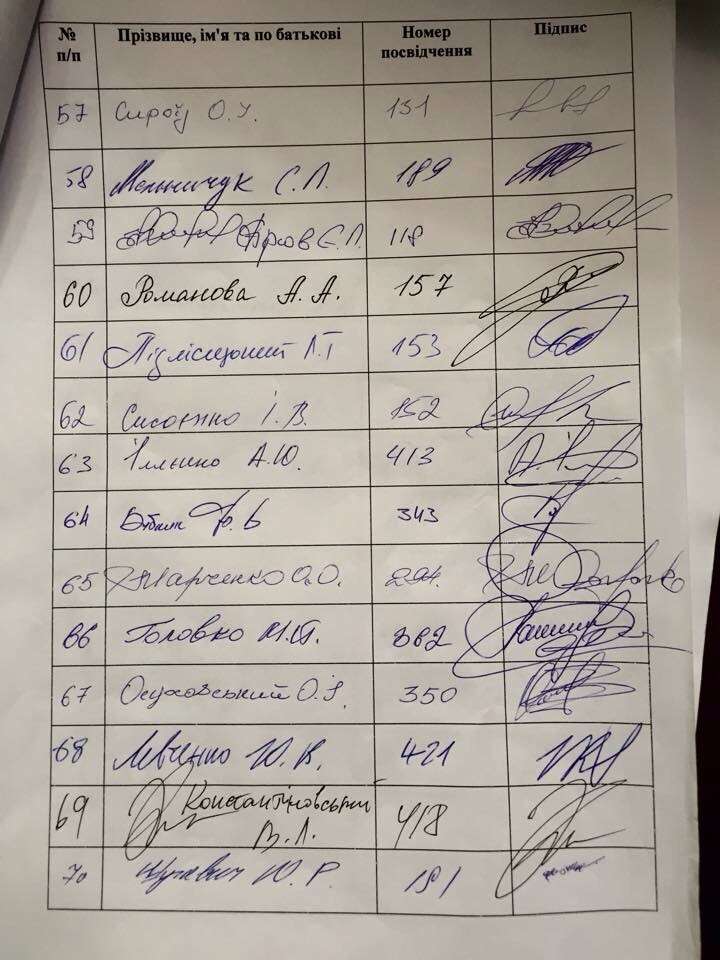 № п/п Прізвище, ім'я та по батькові Номер посвідчення Підпис
57 Сироїд О.І. 131
58 Мельничук С.П. 189
59 118
60 Романова А.А. 157
61 Підлісецький Л.Т 153
62 І.В. 152
63 Іллєнко А.Ю. 413
64 Ю.Б 343
65 Марченко О.О. 294.
66 Головко М.Й. 382
67 Осуховський О.І. 350
68 Левченко Ю.В. 421
69 Константіновський
В.Л. 418
70 Шухевич Ю.Р. 181